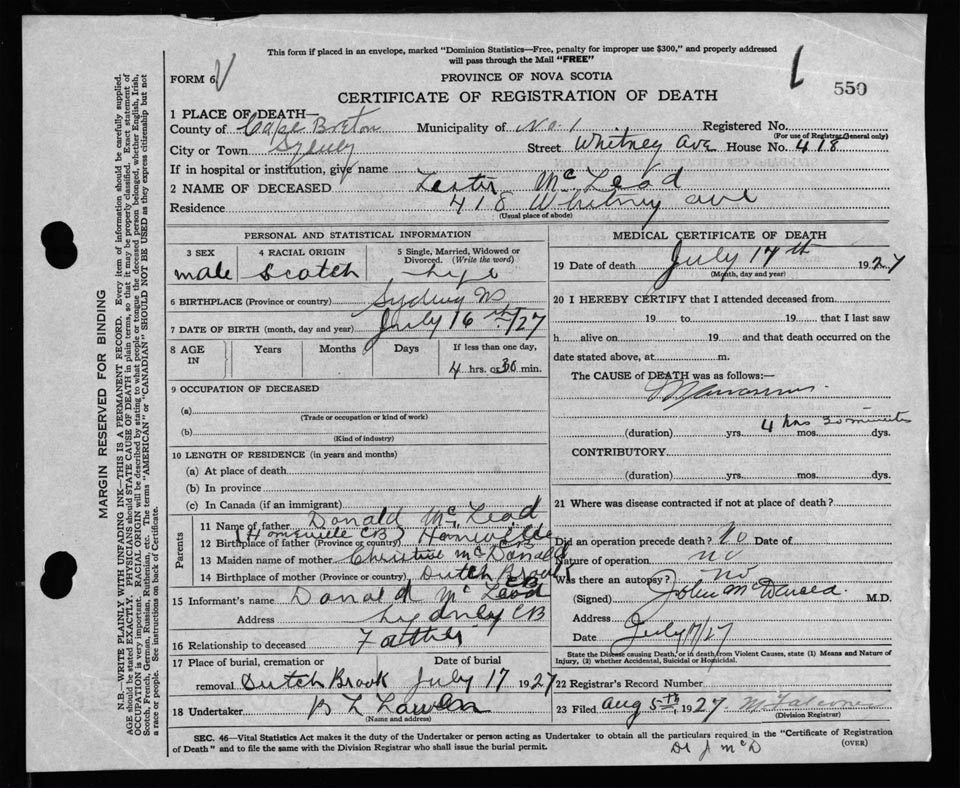 This form if placed in an envelope, marked "Dominion Statistics—Free, penalty for improper use $300," and properly addressed
will pass through the Mail "FREE"
FORM 6
PROVINCE OF NOVA SCOTIA
550
CERTIFICATE OF REGISTRATION OF DEATH
1 PLACE OF DEATH—
County of Cape Breton Municipality of No. 1 Registered No.
(For use of Registrar General only)
City or Town Sydney Street Whitney Ave House No. 418
If in hospital or institution, give name
2 NAME OF DECEASED Lester Mc Leod
Residence 418 Whitney ave
(Usual place of abode)
PERSONAL AND STATISTICAL INFORMATION
3 SEX male
4 RACIAL ORIGIN Scotch
5 Single, Married, Widowed or Divorced. (Write the word)
6 BIRTHPLACE (Province or country) Sydney
7 DATE OF BIRTH (month, day and year) July 16 /27
8 AGE IN Years Months Days If less than one day, 4 hrs. or 30 min.
9 OCCUPATION OF DECEASED
(a)
(Trade or occupation or kind of work)
(b)
(Kind of industry)
10 LENGTH OF RESIDENCE (in years and months)
(a) At place of death
(b) In province
(c) In Canada (if an immigrant)
Parents
11 Name of father Donald Mc Leod
(Homeville CB)
12 Birthplace of father (Province or country) Homeville CB
13 Maiden name of mother Christine McDonald
14 Birthplace of mother (Province or country) Dutch Brook CB
15 Informant's name Donald Mc Leod
Address Sydney CB
16 Relationship to deceased Father
17 Place of burial, cremation or removal Dutch Brook
Date of burial July 17 1927
18 Undertaker
(Name and address)
MEDICAL CERTIFICATE OF DEATH
19 Date of death July 17th 1927
(Month, day and year)
20 I HEREBY CERTIFY that I attended deceased from
19 to 19 that I last saw
h alive on 19 and that death occurred on the
date stated above, at m.
The CAUSE of DEATH was as follows:—
4 hrs 30 minutes
(duration) yrs. mos. dys.
CONTRIBUTORY
(duration) yrs. mos. dys.
21 Where was disease contracted if not at place of death?
Did an operation precede death? No Date of
Nature of operation no
Was there an autopsy? no
(Signed) John McDonald M.D.
Address
Date July 17/27
State the Disease causing Death, or in death from Violent Causes, state (1) Means and Nature of
Injury, (2) whether Accidental, Suicidal or Homicidal.
22 Registrar's Record Number
23 Filed Aug 5th 1927
(Division Registrar)
SEC. 46—Vital Statistics Act makes it the duty of the Undertaker or person acting as Undertaker to obtain all the particulars required in the "Certificate of Registration
of Death" and to file the same with the Division Registrar who shall issue the burial permit.
(OVER)
Dr J McD
MARGIN RESERVED FOR BINDING
N.B.—WRITE PLAINLY WITH UNFADING INK—THIS IS A PERMANENT RECORD. Every item of information should be carefully supplied.
AGE should be stated EXACTLY. PHYSICIANS should STATE CAUSE OF DEATH in plain terms, so that it may be properly classified. Exact statement of
OCCUPATION is very important. RACIAL ORIGIN will be described by stating to what people or tongue the deceased person belonged, whether English, Irish,
Scotch, French, German, Russian, Ruthenian, etc. The terms "AMERICAN" or "CANADIAN" SHOULD NOT BE USED as they express citizenship but not
a race or people. See instructions on back of Certificate.